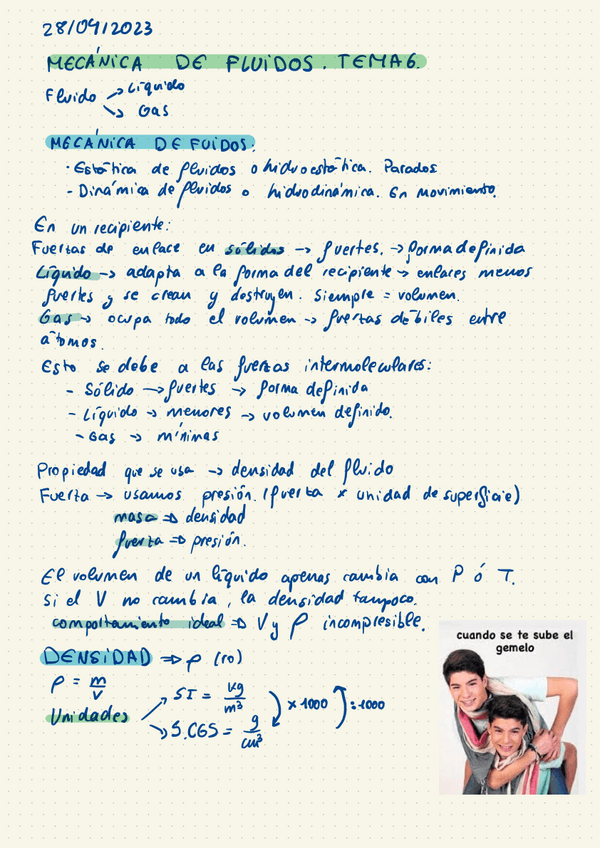 28/04/2023
MECÁNICA DE FLUIDOS. TEMA 6.
Fluido → Líquido
→ Gas
MECÁNICA DE FUIDOS.
· Estática de fluidos o hidroestática. Parados
- Dinámica de fluidos o hidrodinámica. En movimiento.
En un recipiente:
Fuerzas de enlace en sólidos → fuertes. → forma definida
Líquido → adapta a la forma del recipiente → enlaces menos
fuertes y se crean y destruyen. Siempre = volumen.
Gas → ocupa todo el volumen → fuerzas débiles entre
átomos.
Esto se debe a las fuerzas intermoleculares:
- Sólido → fuertes → forma definida
- Líquido → menores → volumen definido.
- Gas → mínimas
Propiedad que se usa → densidad del fluido
Fuerza → usamos presión. (fuerza x unidad de superficie)
masa ⇒ densidad
fuerza ⇒ presión.
El volumen de un líquido apenas cambia con P ó T.
Si el V no cambia, la densidad tampoco.
comportamiento ideal ⇒ V y ρ incompresible.
DENSIDAD ⇒ ρ (ro)
ρ = m/V
Unidades → SI = kg/m³
→ S.CGS = g/cm³
x 1000 : 1000
cuando se te sube el
gemelo